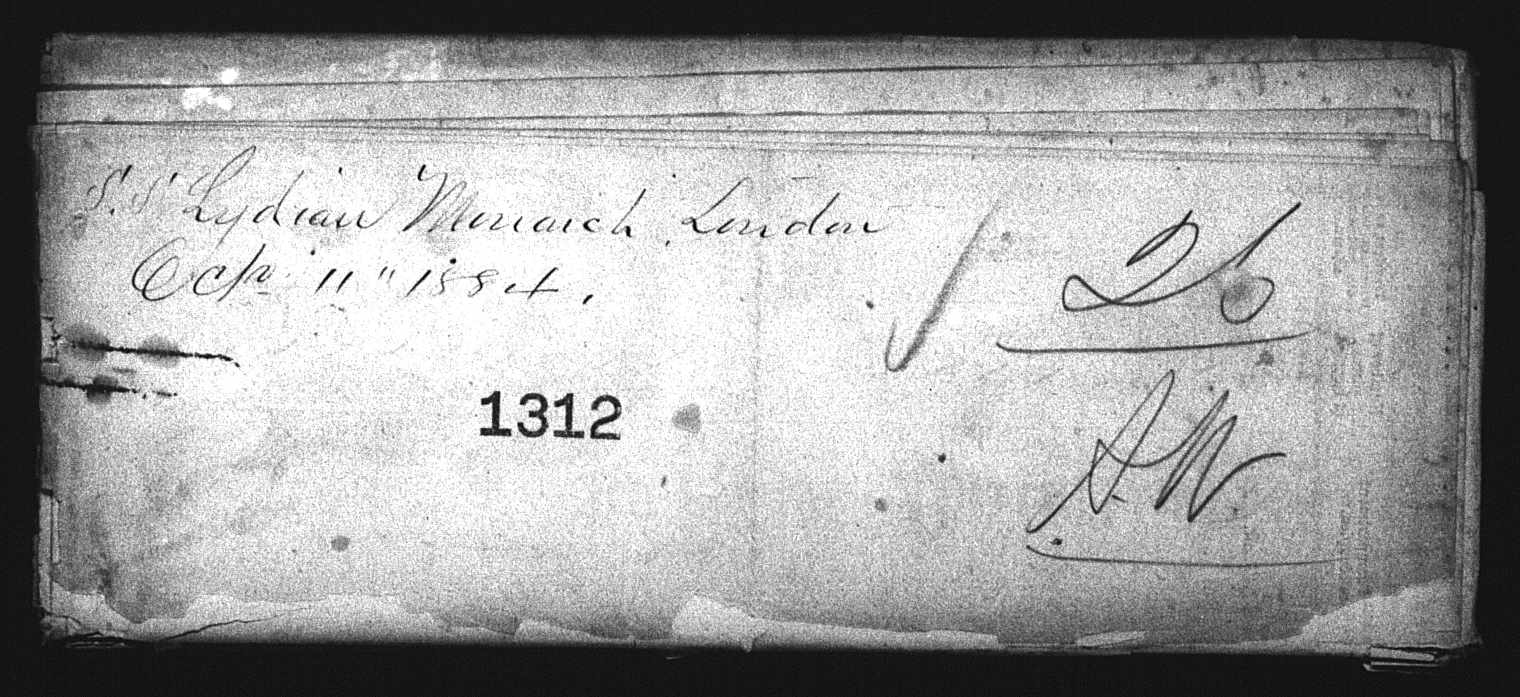 S.S Lydian Monarch, London
Oct 11" 1884.
26
1312
A.W.